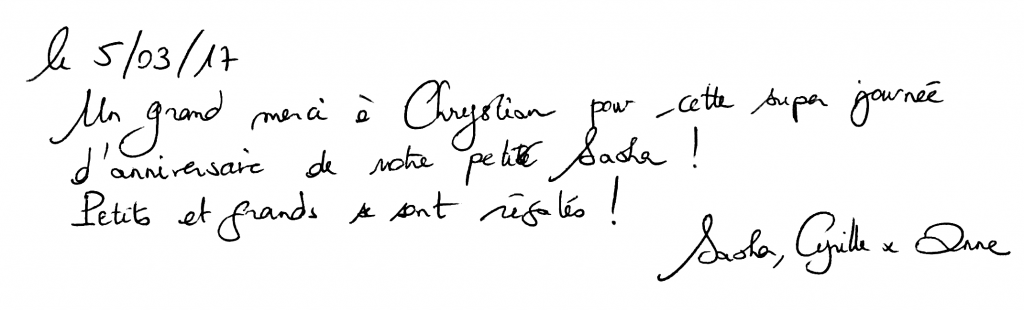 le 5/03/17
Un grand merci à Chrystian pour cette super journée
d'anniversaire de notre petit Sasha !
Petits et grands se sont régalés !
Sasha, Cyrille x Anne